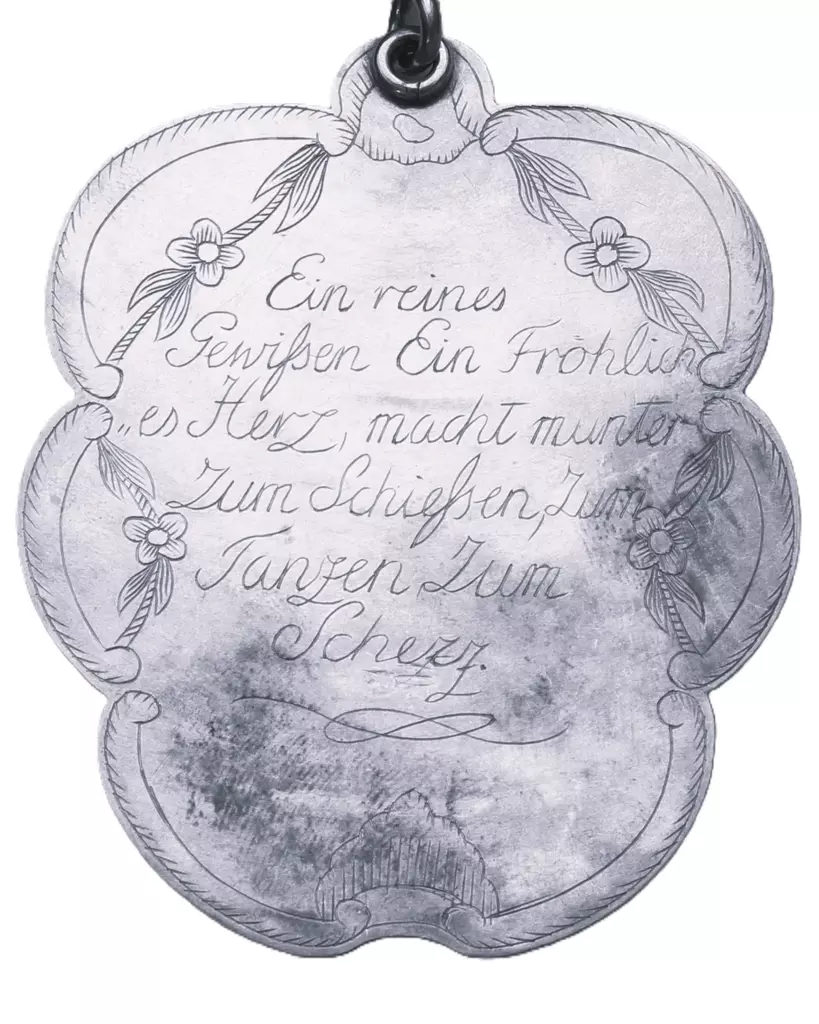 Ein reines
Gewißen Ein Fröhlich
„es Herz, macht munter
Zum Schießen, Zum
Tanzen Zum
Scherz.